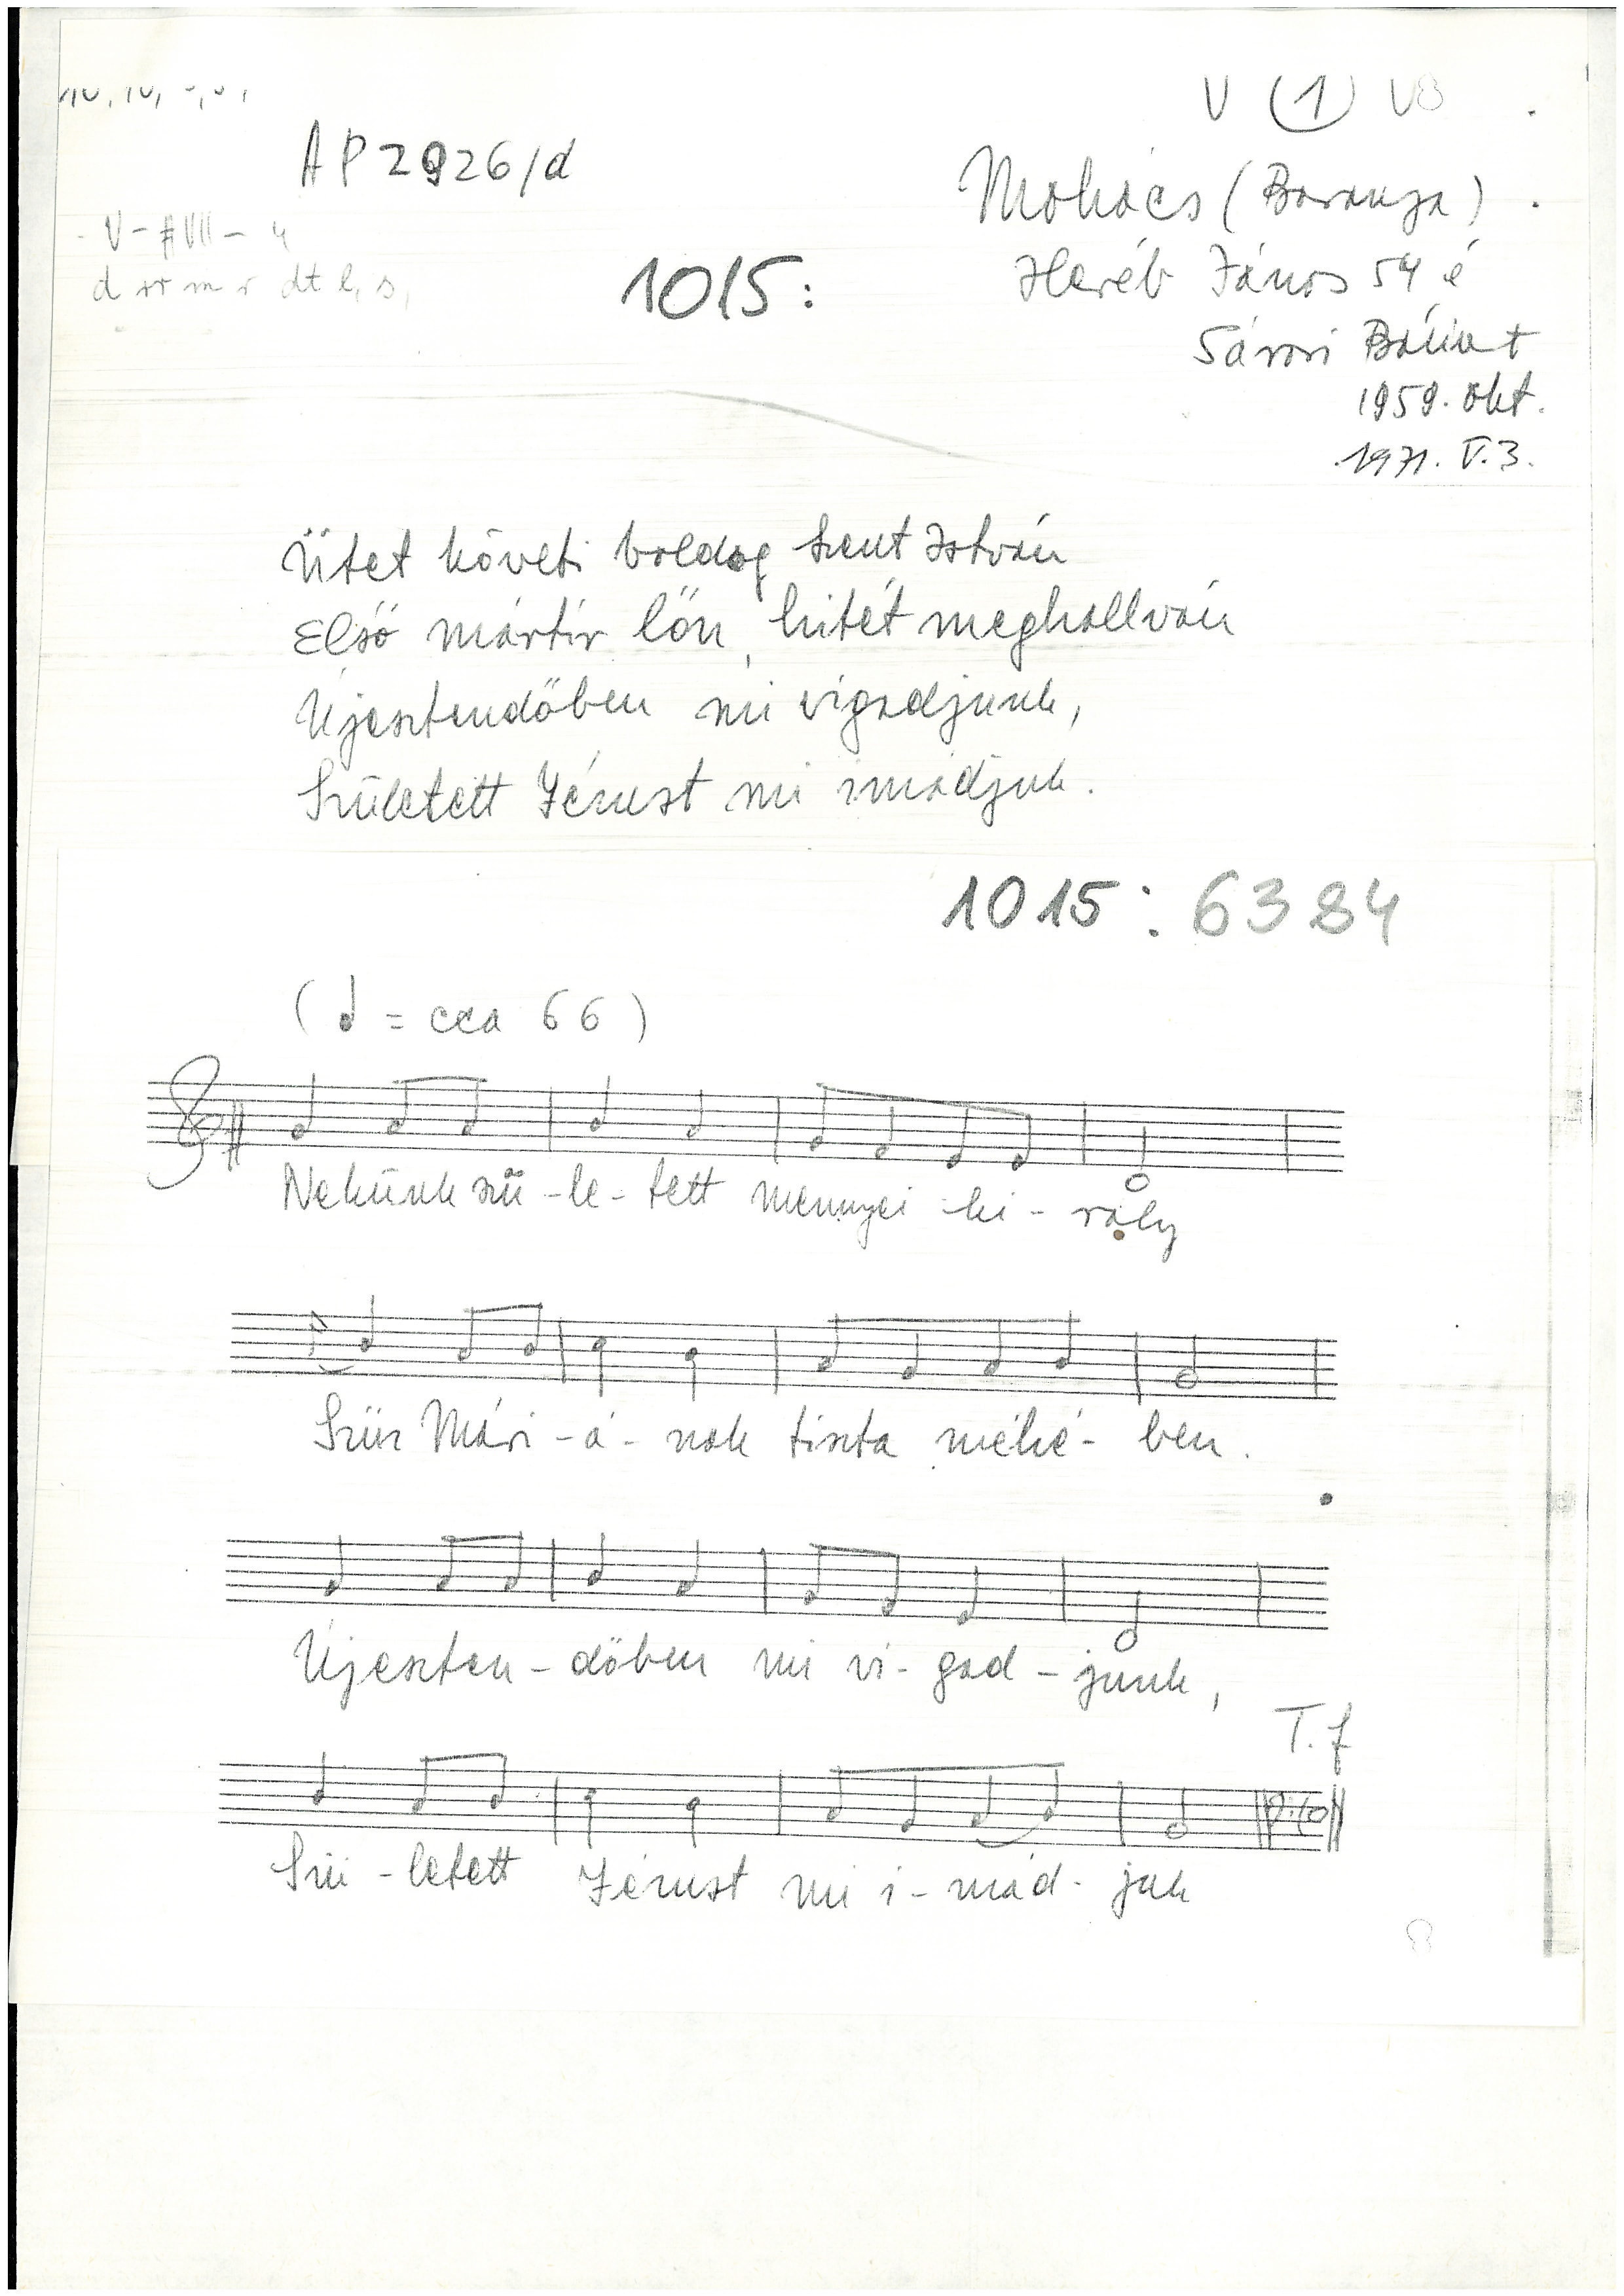 V (1) V8
AP 2926/d
Mohács (Baranya)
V - #VII - 4
d rr m r dt l, s,
1015:
Heréb János 54 é
Sárosi Bálint
1959. okt.
1971. V. 3.
Űtet követi boldog Szent István
Első mártír lőn, hitét meghallván
Újesztendőben mi vigadjunk,
Született Jézust mi imádjuk.
1015: 6384
(♩ = cca 66)
Nekünk szü - le - tett mennyei ki - rály
Szűz Mári - á - nak tiszta méhé - ben.
Újeszten - dőben mi vi - gad - junk,
T. f
Szü - letett Jézust mi i - mád - juk
8